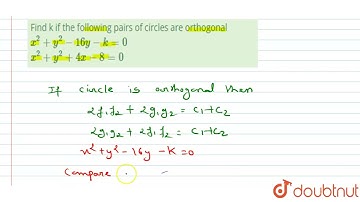 Find k if the following pairs of circles are orthogonal
x² + y² − 16y − k = 0
x² + y² + 4x − 8 = 0
If circle is orthogonal then
2f₁f₂ + 2g₁g₂ = c₁+c₂
2g₁g₂ + 2f₁f₂ = c₁+c₂
x²+y² − 16y − k = 0
Compare
doubtnut